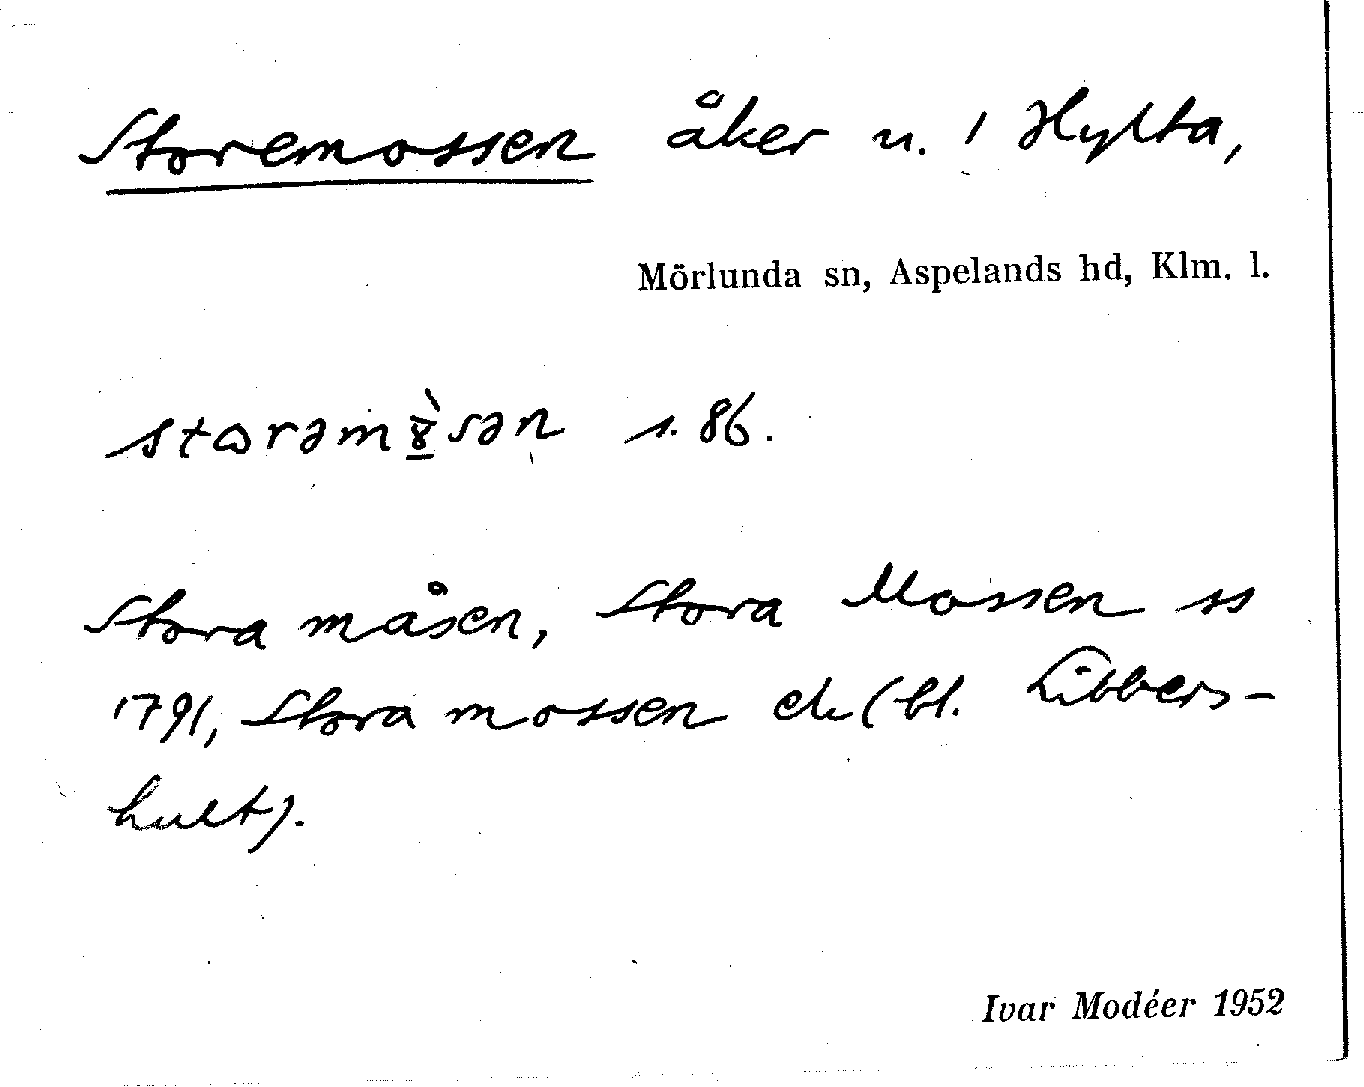 Storemossen åker u. 1 Hylta,
Mörlunda sn, Aspelands hd, Klm. l.
s. 86.
Stora måsen, Stora Mossen ss
1791, Stora mossen ek (bl. Libbers-
hult).
Ivar Modéer 1952